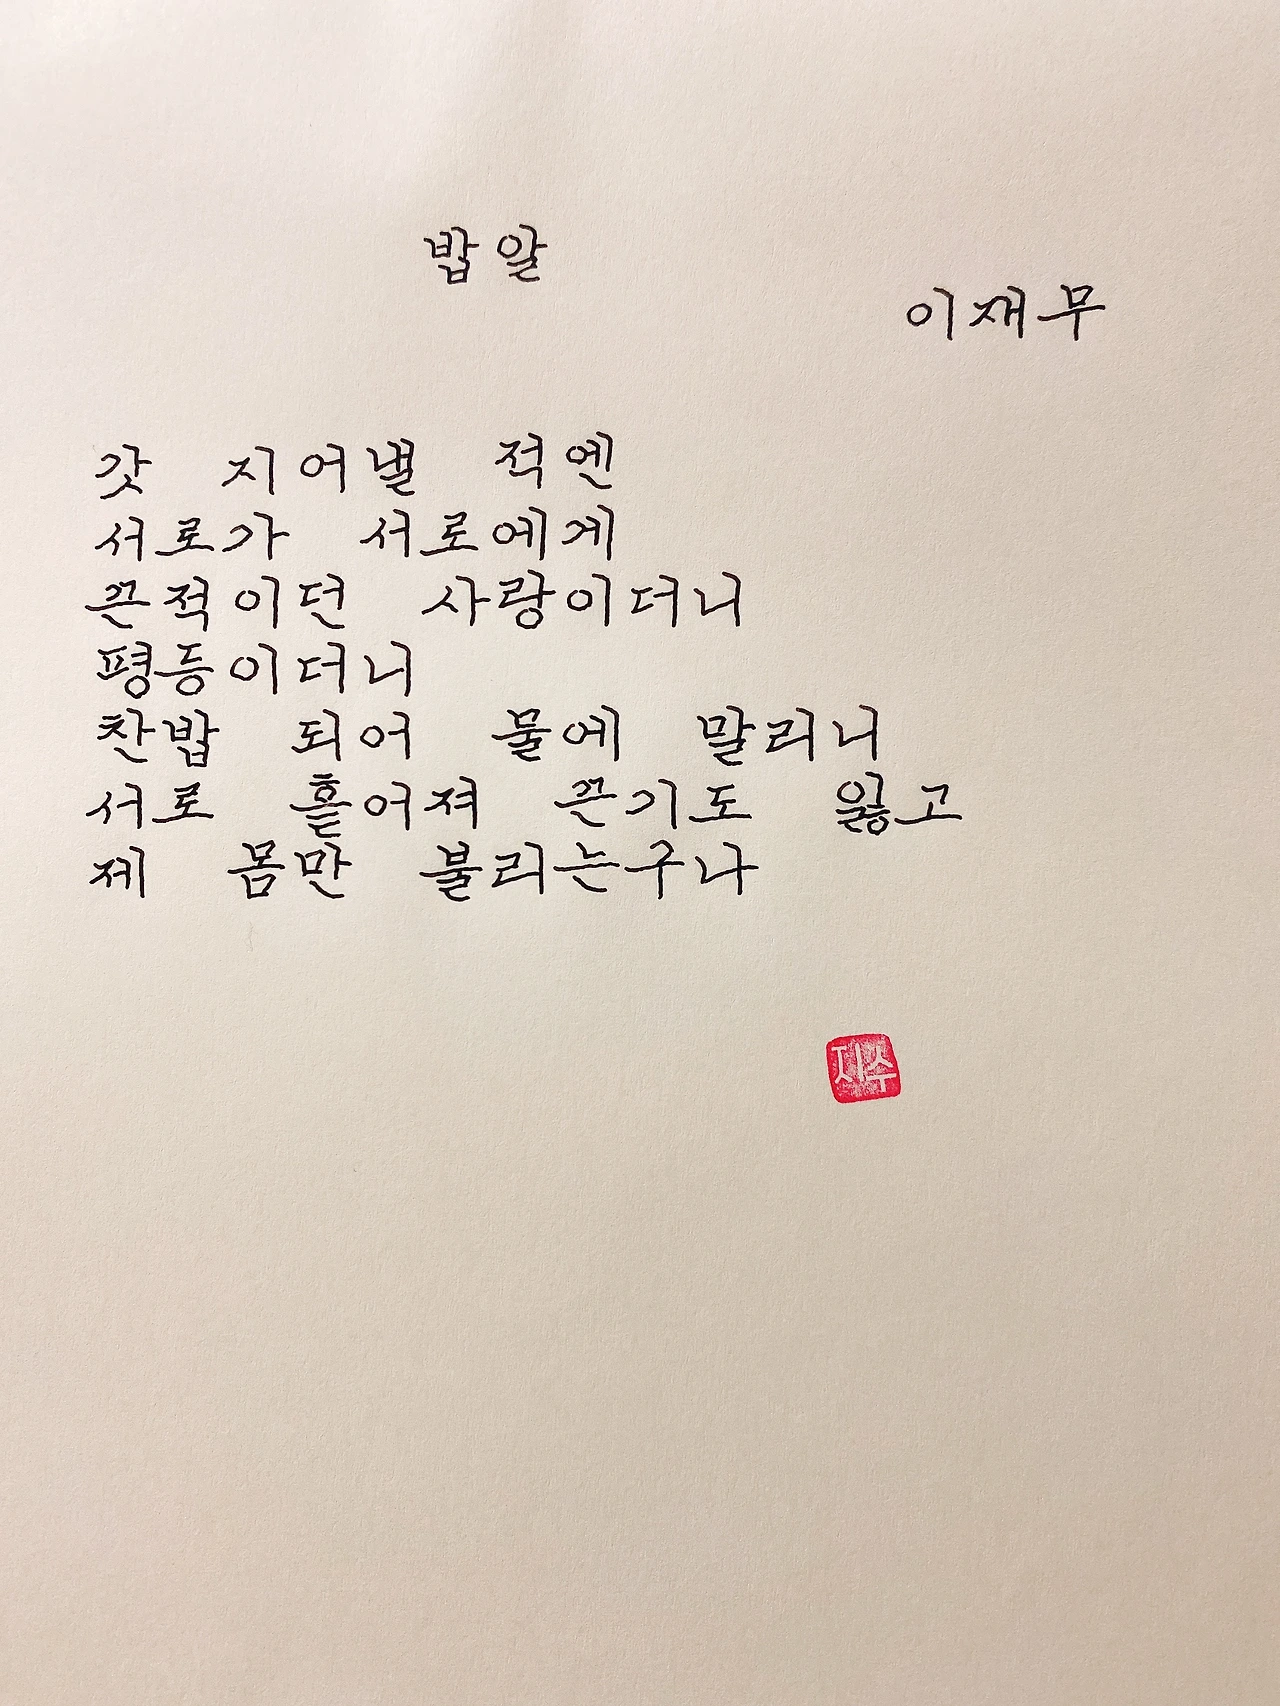 밥알
이재무
갓 지어낼 적엔
서로가 서로에게
끈적이던 사랑이더니
평등이더니
찬밥 되어 물에 말리니
서로 흩어져 끈기도 잃고
제 몸만 불리는구나
지수